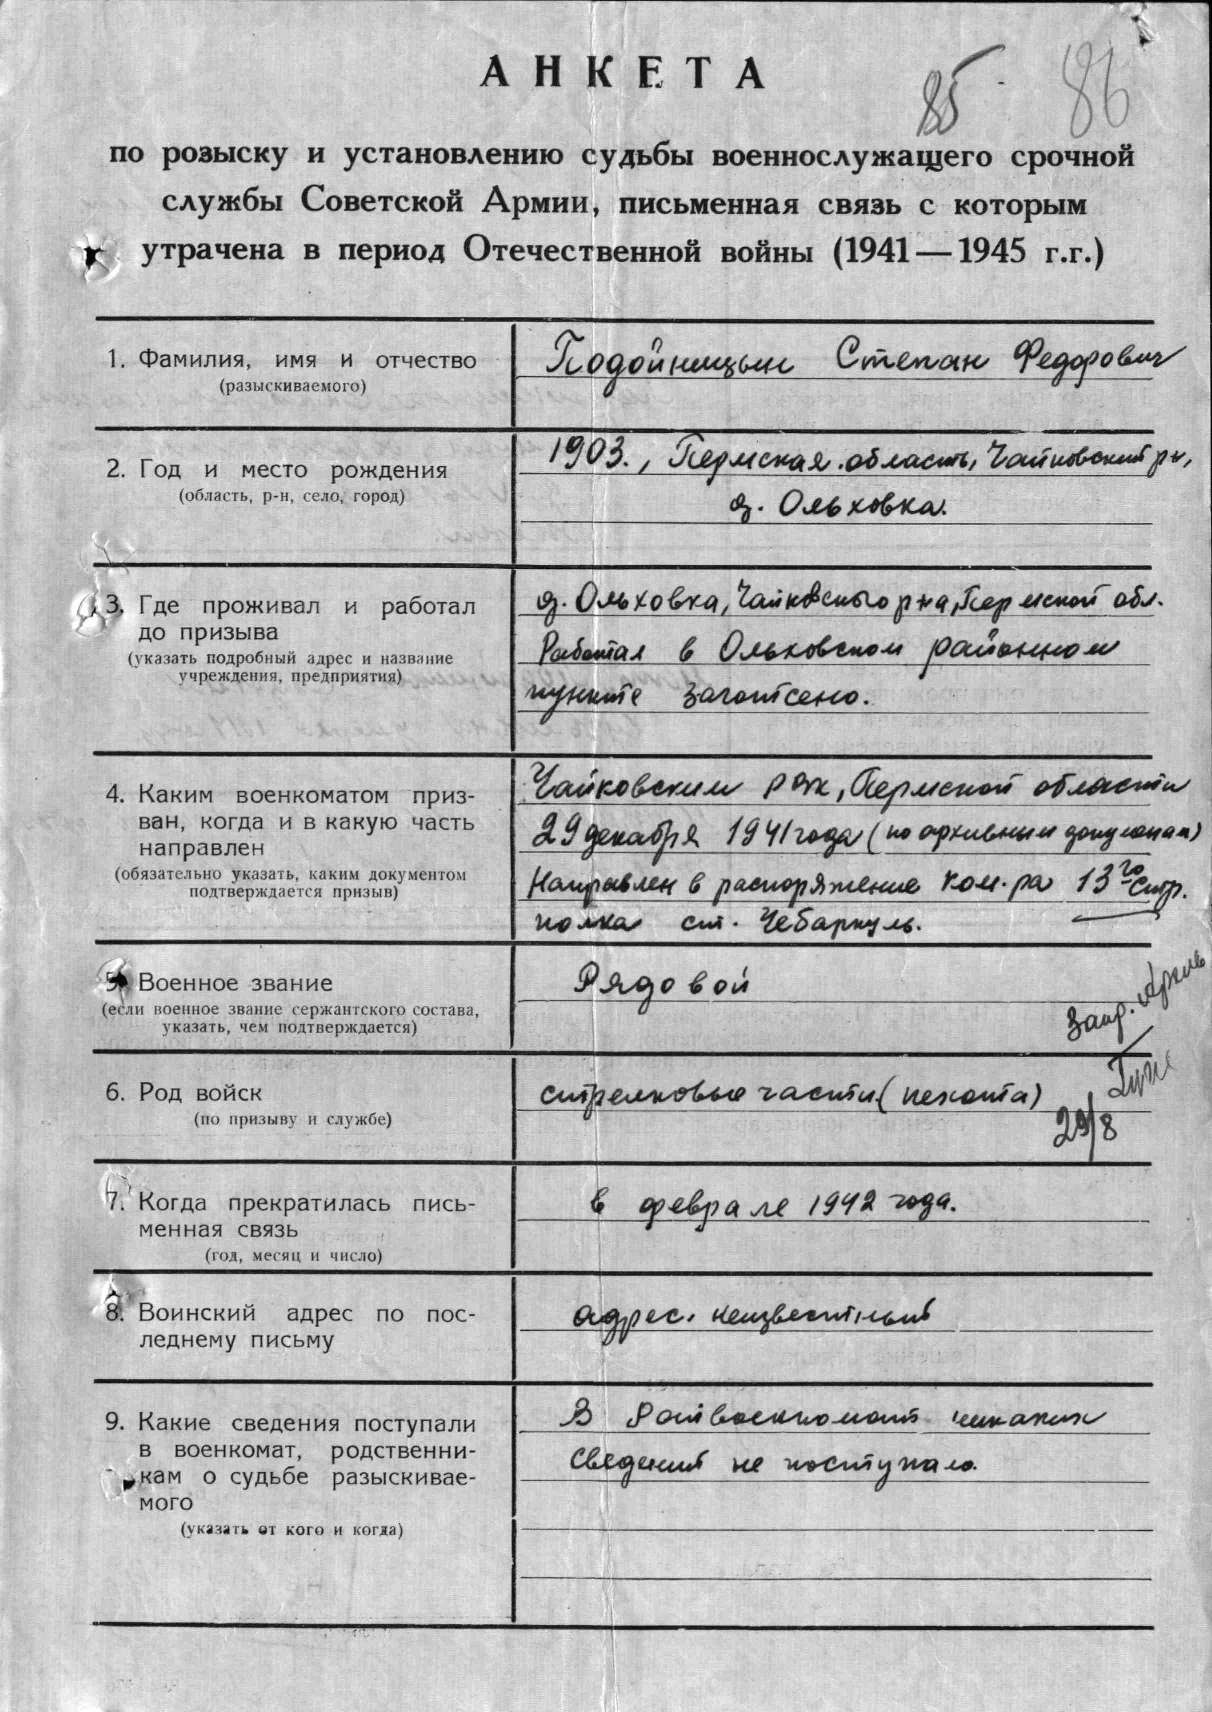 АНКЕТА
85 86
по розыску и установлению судьбы военнослужащего срочной
службы Советской Армии, письменная связь с которым
утрачена в период Отечественной войны (1941—1945 г.г.)
1. Фамилия, имя и отчество
(разыскиваемого)
Подойницын Степан Федорович
2. Год и место рождения
(область, р-н, село, город)
1903., Пермская область, Чайковский р-н,
д. Ольховка.
3. Где проживал и работал
до призыва
(указать подробный адрес и название
учреждения, предприятия)
д. Ольховка, Чайковского р-на, Пермской обл.
Работал в Ольховском районном
пункте Заготсено.
4. Каким военкоматом приз-
ван, когда и в какую часть
направлен
(обязательно указать, каким документом
подтверждается призыв)
Чайковским РВК, Пермской области
29 декабря 1941 года (по архивным документам)
Направлен в распоряжение ком-ра 13го стр.
полка ст. Чебаркуль.
5. Военное звание
(если военное звание сержантского состава,
указать, чем подтверждается)
Рядовой
Запр. Архив
6. Род войск
(по призыву и службе)
стрелковые части (пехота)
29/8
7. Когда прекратилась пись-
менная связь
(год, месяц и число)
в феврале 1942 года.
8. Воинский адрес по пос-
леднему письму
адрес. неизвестный
9. Какие сведения поступали
в военкомат, родственни-
кам о судьбе разыскивае-
мого
(указать от кого и когда)
В Райвоенкомат никаких
сведений не поступало.